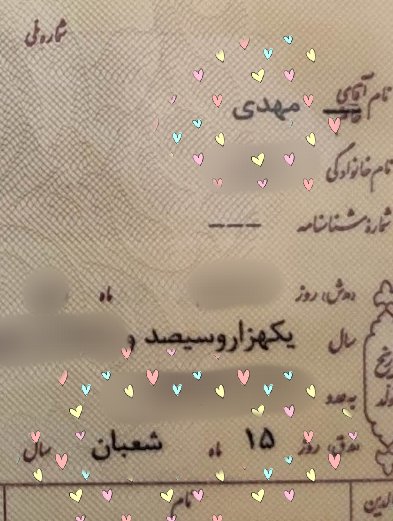 شماره ملی
نام آقای خانم مهدی
نام خانوادگی
شماره شناسنامه ---
روز ماه
سال یکهزاروسیصد و
به عدد
روز ۱۵ ماه شعبان سال
نام